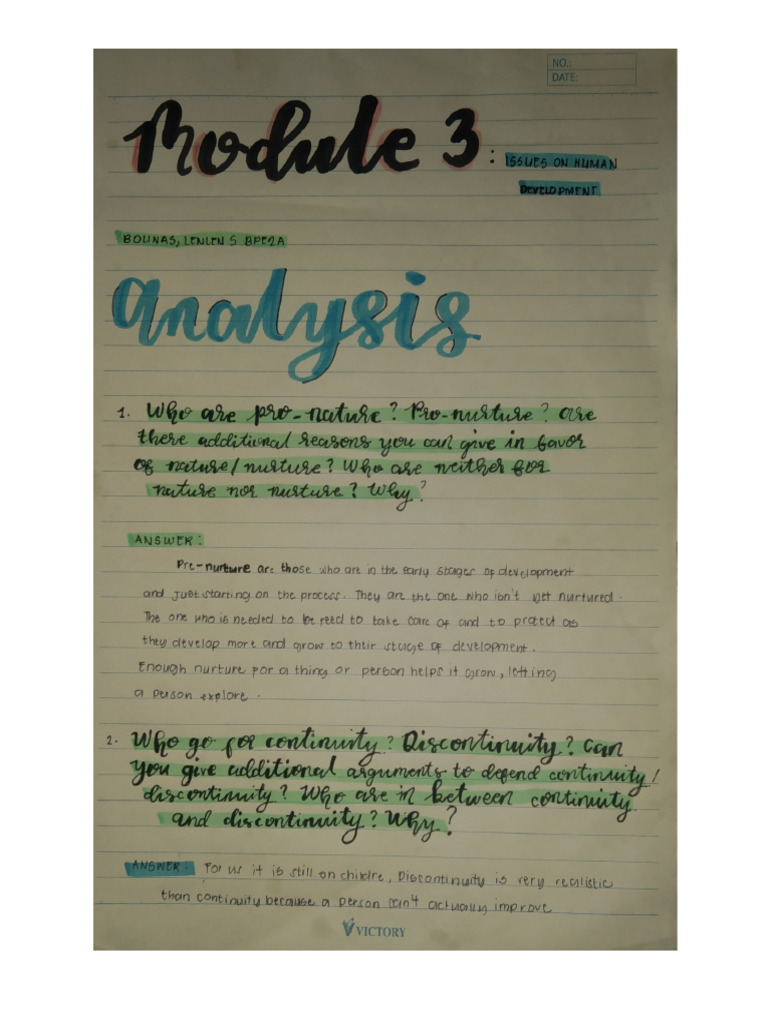 NO.:
DATE:
Module 3 : ISSUES ON HUMAN
DEVELOPMENT
BOLINAS, LENLEN S BPE2A
Analysis
1. Who are pro-nature? Pro-nurture? are
there additional reasons you can give in favor
of nature/nurture? Who are neither for
nature nor nurture? Why?
ANSWER:
Pre-nurture are those who are in the early stages of development
and just starting on the process. They are the one who isn't yet nurtured.
The one who is needed to be to take care of and to protect as
they develop more and grow to their stage of development.
Enough nurture for a thing or person helps it grow, letting
a person explore.
2. Who go for continuity? Discontinuity? Can
you give additional arguments to defend continuity/
discontinuity? Who are in between continuity
and discontinuity? Why?
ANSWER: For us it is still on childre, Discontinuity is very realistic
than continuity because a person can't actually improve
VICTORY